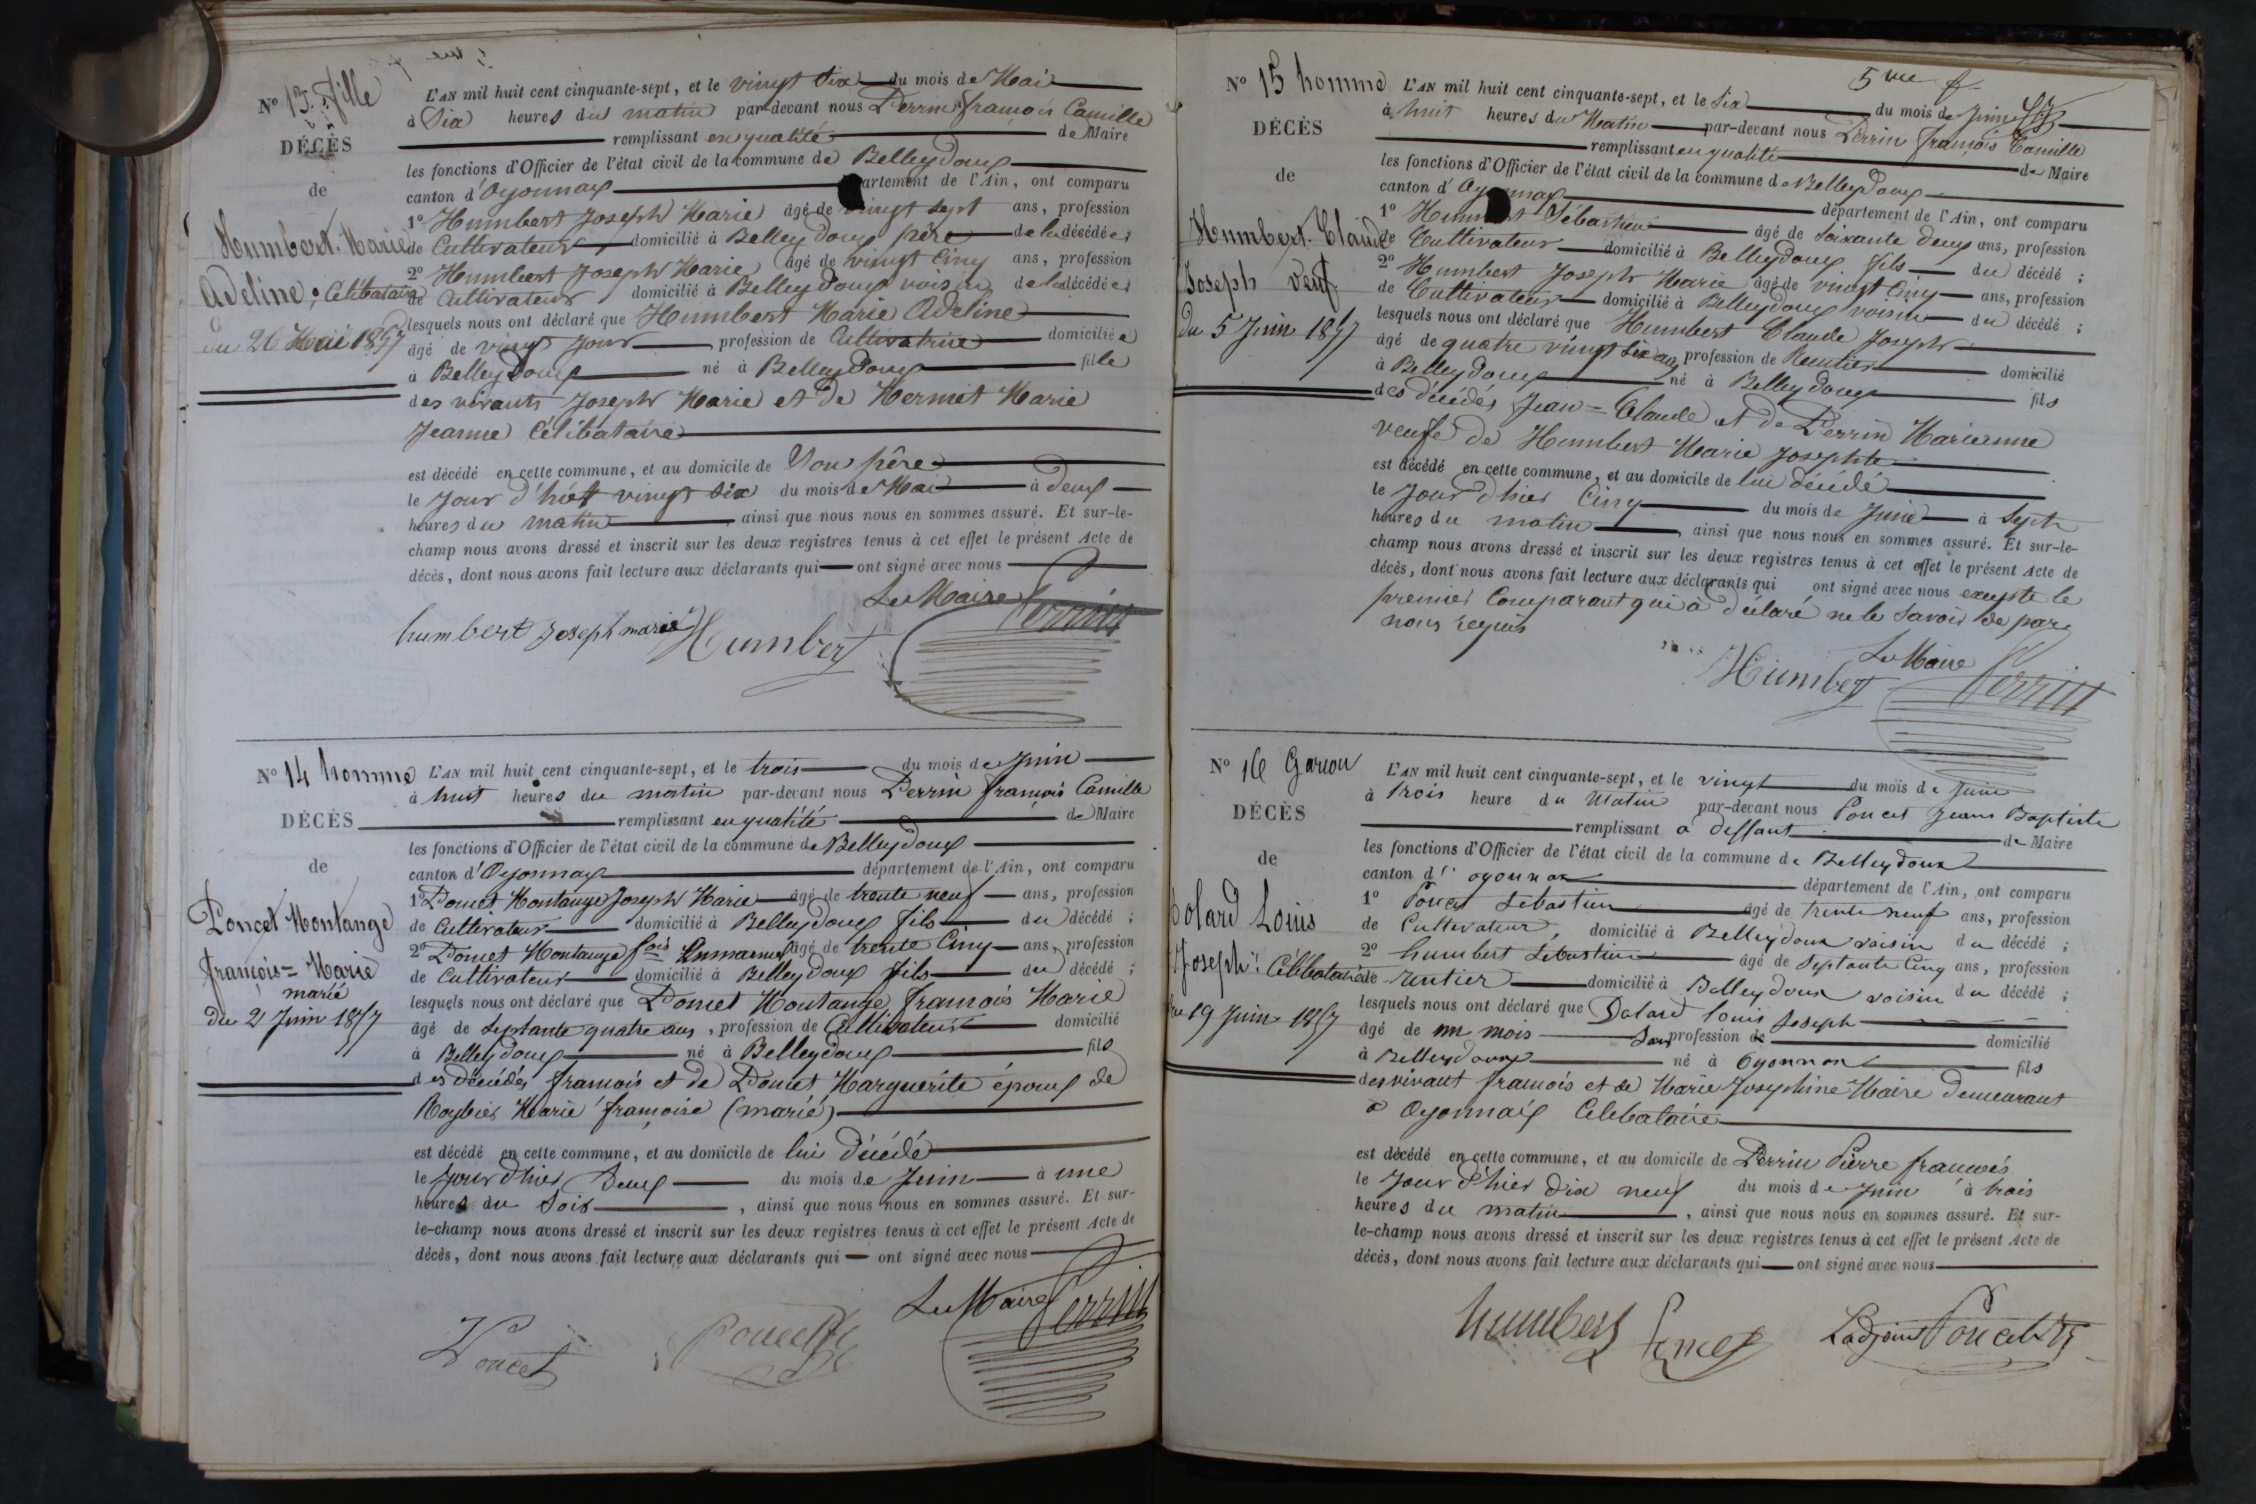 N° 13. fille
DÉCÈS
de
Humbert. Marie
Adeline, Célibataire
du 26 Mai 1857
L'AN mil huit cent cinquante-sept, et le vingt six du mois de Mai
à Six heures du matin par-devant nous Perrin françois Camille
remplissant en qualité de Maire
les fonctions d'Officier de l'état civil de la commune de Belleydoux
canton d'Oyonnax département de l'Ain, ont comparu
1° Humbert Joseph Marie âgé de vingt sept ans, profession
de Cultivateur domicilié à Belleydoux père de la décédée;
2° Humbert Joseph Marie, âgé de vingt Cinq ans, profession
de Cultivateur domicilié à Belleydoux voisin de la décédée;
lesquels nous ont déclaré que Humbert Marie Adeline
âgé de vingt Jour profession de Cultivatrice domiciliée
à Belleydoux né à Belleydoux fille
des vivants Joseph Marie et de Mermet Marie
Jeanne Célibataire
est décédé en cette commune, et au domicile de Son père
le Jour d'hui vingt six du mois de Mai à deux
heures du matin ainsi que nous nous en sommes assuré. Et sur-le-
champ nous avons dressé et inscrit sur les deux registres tenus à cet effet le présent Acte de
décès, dont nous avons fait lecture aux déclarants qui ont signé avec nous
Le Maire Perrin
humbert joseph marie Humbert
N° 14 homme
DÉCÈS
de
Poncet Montange
françois=Marie
marié
du 2 Juin 1857
L'AN mil huit cent cinquante-sept, et le trois du mois de Juin
à huit heures du matin par-devant nous Perrin françois Camille
remplissant en qualité de Maire
les fonctions d'Officier de l'état civil de la commune de Belleydoux
canton d'Oyonnax département de l'Ain, ont comparu
1° Poncet Montange Joseph Marie âgé de trente neuf ans, profession
de Cultivateur domicilié à Belleydoux fils du décédé;
2° Poncet Montange fois Emmanuel âgé de trente Cinq ans, profession
de Cultivateur domicilié à Belleydoux fils du décédé;
lesquels nous ont déclaré que Poncet Montange françois Marie
âgé de Septante quatre ans, profession de Cultivateur domicilié
à Belleydoux né à Belleydoux fils
des décédés françois et de Poncet Marguerite époux de
Roybier Marie françoise (marié)
est décédé en cette commune, et au domicile de lui décédé
le Jour d'hier Deux du mois de Juin à une
heures du Soir, ainsi que nous nous en sommes assuré. Et sur-
le-champ nous avons dressé et inscrit sur les deux registres tenus à cet effet le présent Acte de
décès, dont nous avons fait lecture aux déclarants qui ont signé avec nous
Le Maire Perrin
Poncet Poncet
5me f.
N° 15 homme
DÉCÈS
de
Humbert. Claude
Joseph veuf
du 5 Juin 1857
L'AN mil huit cent cinquante-sept, et le Six du mois de Juin
à huit heures du Matin par-devant nous Perrin françois Camille
remplissant en qualité de Maire
les fonctions d'Officier de l'état civil de la commune de Belleydoux
canton d'Oyonnax département de l'Ain, ont comparu
1° Humbert Sébastien âgé de Soixante deux ans, profession
de Cultivateur domicilié à Belleydoux fils du décédé;
2° Humbert Joseph Marie âgé de vingt Cinq ans, profession
de Cultivateur domicilié à Belleydoux voisin du décédé;
lesquels nous ont déclaré que Humbert Claude Joseph
âgé de quatre vingt six ans profession de Rentier domicilié
à Belleydoux né à Belleydoux fils
des décédés Jean=Claude et de Perrin Marianne
veufe de Humbert Marie Josephte
est décédé en cette commune, et au domicile de lui décédé
le Jour d'hier Cinq du mois de Juin à Sept
heures du matin, ainsi que nous nous en sommes assuré. Et sur-le-
champ nous avons dressé et inscrit sur les deux registres tenus à cet effet le présent Acte de
décès, dont nous avons fait lecture aux déclarants qui ont signé avec nous excepté le
premier Comparant qui à déclaré ne le Savoir de par
nous requis
Le Maire
Humbert Perrin
N° 16 Garçon
DÉCÈS
de
Dolard Louis
Joseph. Célibataire
du 19 Juin 1857
L'AN mil huit cent cinquante-sept, et le vingt du mois de Juin
à trois heure du Matin par-devant nous Poncet Jean Baptiste
remplissant à deffaut de Maire
les fonctions d'Officier de l'état civil de la commune de Belleydoux
canton d'oyonnax département de l'Ain, ont comparu
1° Poncet Sébastien âgé de trente neuf ans, profession
de Cultivateur, domicilié à Belleydoux voisin du décédé;
2° humbert Sébastien âgé de Septante Cinq ans, profession
de rentier domicilié à Belleydoux voisin du décédé;
lesquels nous ont déclaré que Dolard louis Joseph
âgé de un mois Sans profession de domicilié
à Belleydoux né à Oyonnax fils
des vivant françois et de Marie Josephine Maire demeurant
à Oyonnax Célibataire
est décédé en cette commune, et au domicile de Perrin Pierre françois
le Jour d'hier dix neuf du mois de Juin à trois
heures du matin, ainsi que nous nous en sommes assuré. Et sur-
le-champ nous avons dressé et inscrit sur les deux registres tenus à cet effet le présent Acte de
décès, dont nous avons fait lecture aux déclarants qui ont signé avec nous
humbert Poncet Ladjoint Poncet